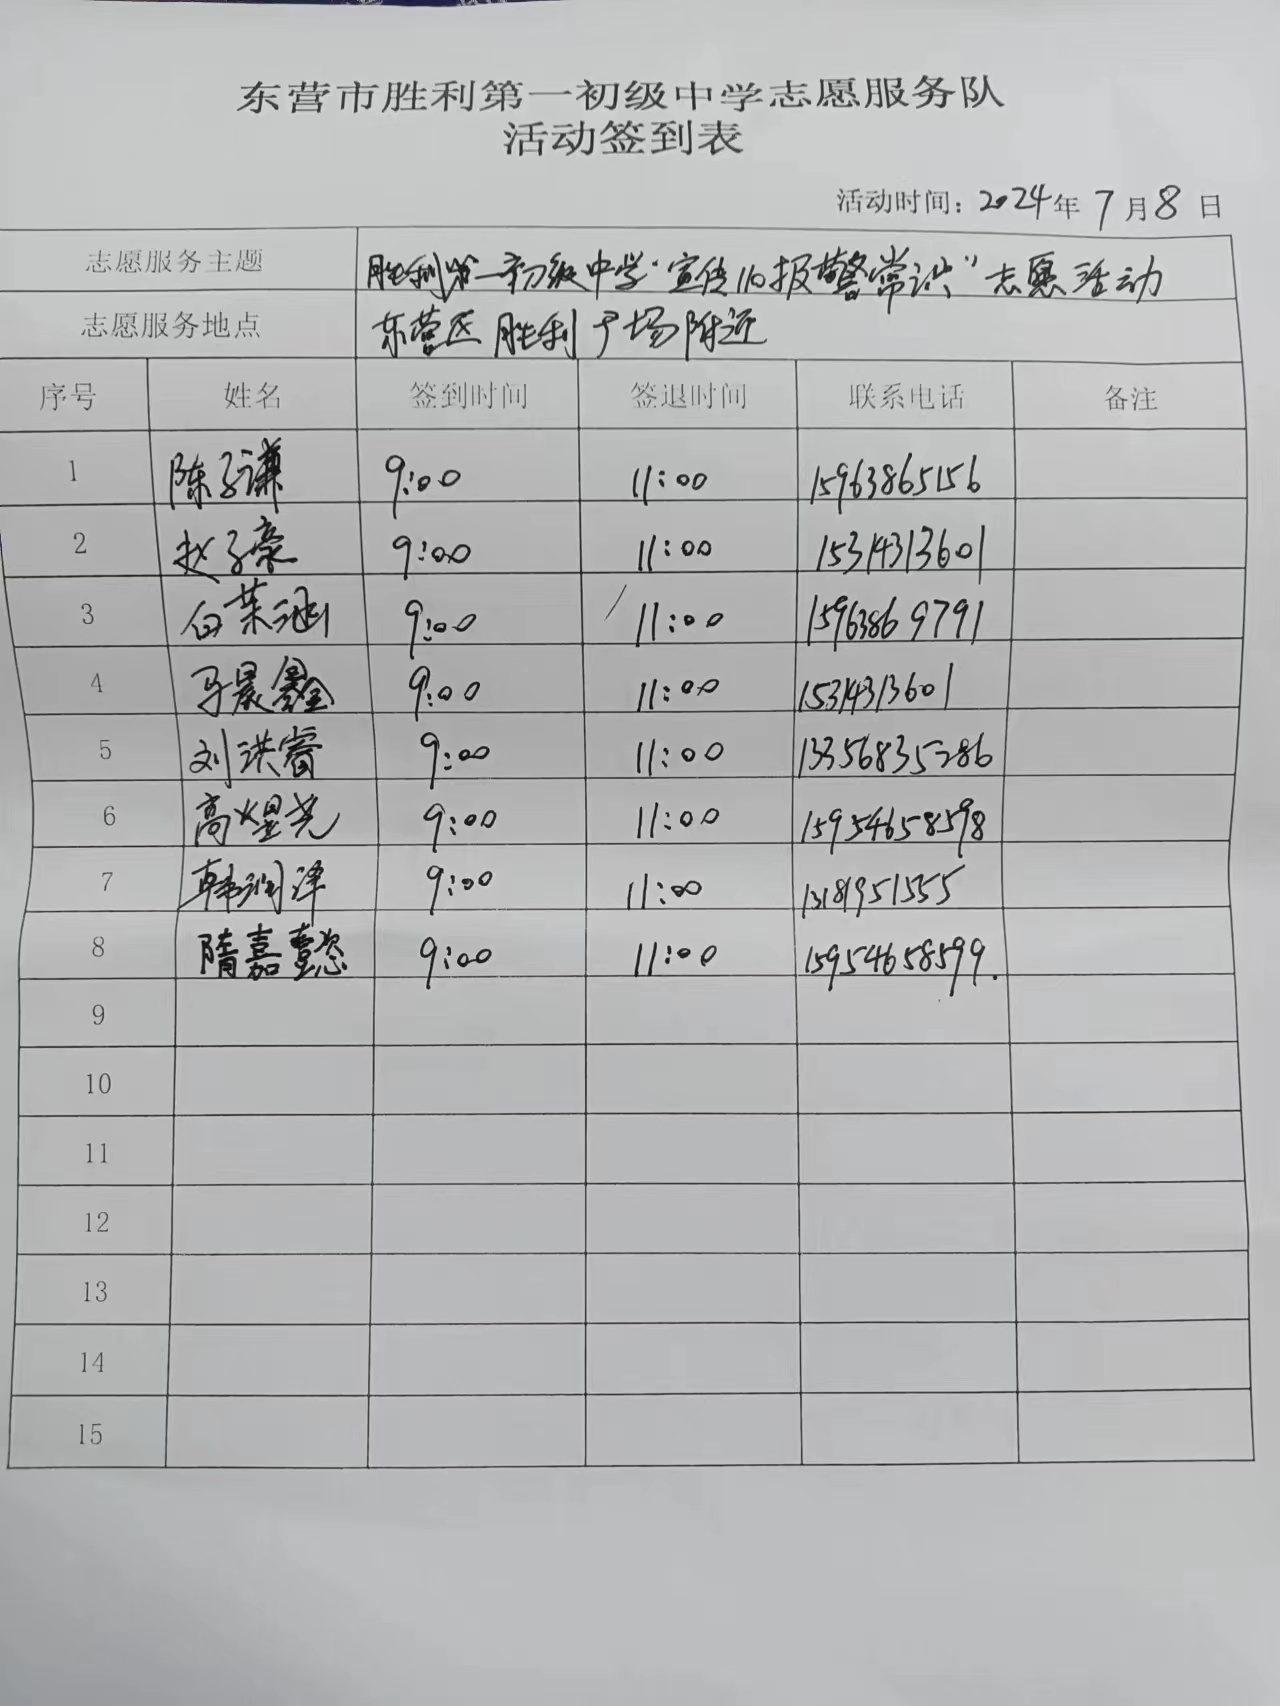 东营市胜利第一初级中学志愿服务队
活动签到表
活动时间：2024年7月8日
志愿服务主题 胜利第一初级中学“宣传110报警常识”志愿活动
志愿服务地点 东营区胜利广场附近
序号 姓名 签到时间 签退时间 联系电话 备注
1 陈子谦 9:00 11:00 15963865156
2 赵子豪 9:00 11:00 15314313601
3 白茉涵 9:00 11:00 15963869791
4 马晨鑫 9:00 11:00 15314313601
5 刘洪睿 9:00 11:00 13356835286
6 高煜尧 9:00 11:00 15954658598
7 韩润泽 9:00 11:00 13181951555
8 隋嘉懿 9:00 11:00 15954658599.
9
10
11
12
13
14
15